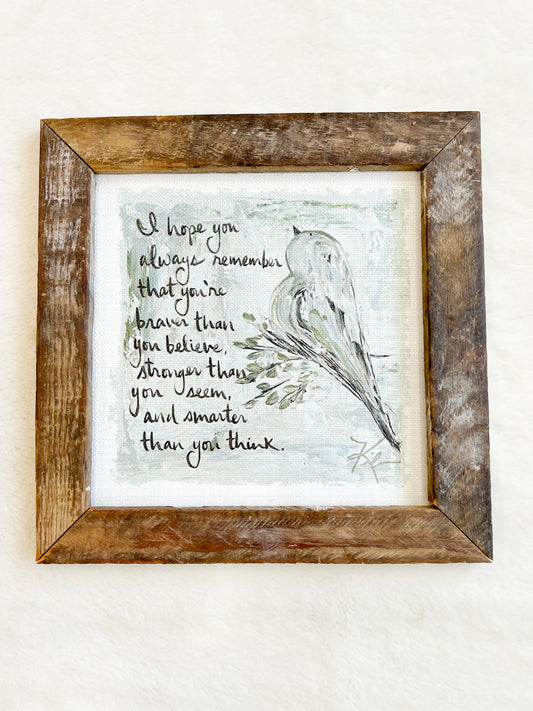 I hope you
always remember
that you're
braver than
you believe,
stronger than
you seem,
and smarter
than you think.